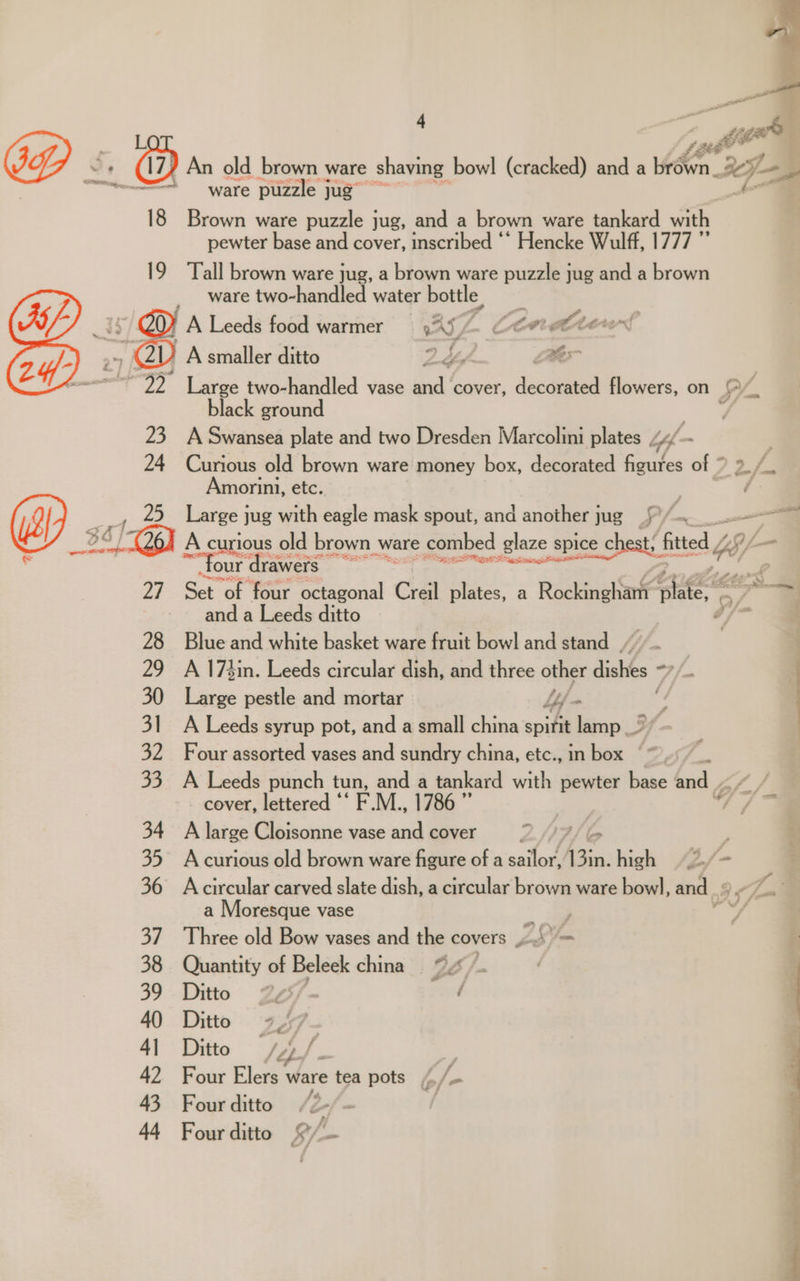 4
LOT
17 An old brown ware shaving bowl (cracked) and a brown
ware puzzle jug
18 Brown ware puzzle jug, and a brown ware tankard with
pewter base and cover, inscribed “ Hencke Wulff, 1777 ”
19 Tall brown ware jug, a brown ware puzzle jug and a brown
ware two-handled water bottle
20 A Leeds food warmer 25/-
21 A smaller ditto
22 Large two-handled vase and cover, decorated flowers, on
black ground
23 A Swansea plate and two Dresden Marcolini plates
24 Curious old brown ware money box, decorated figures of
Amorini, etc.
25 Large jug with eagle mask spout, and another jug
26 A curious old brown ware combed glaze spice chest, fitted
four drawers
27 Set of four octagonal Creil plates, a Rockingham plate,
and a Leeds ditto
28 Blue and white basket ware fruit bowl and stand
29 A 17½in. Leeds circular dish, and three other dishes
30 Large pestle and mortar
31 A Leeds syrup pot, and a small china spirit lamp
32 Four assorted vases and sundry china, etc., in box
33 A Leeds punch tun, and a tankard with pewter base and
cover, lettered “ F.M., 1786 ”
34 A large Cloisonne vase and cover
35 A curious old brown ware figure of a sailor, 13in. high
36 A circular carved slate dish, a circular brown ware bowl, and
a Moresque vase
37 Three old Bow vases and the covers
38 Quantity of Beleek china
39 Ditto
40 Ditto
41 Ditto
42 Four Elers ware tea pots
43 Four ditto
44 Four ditto